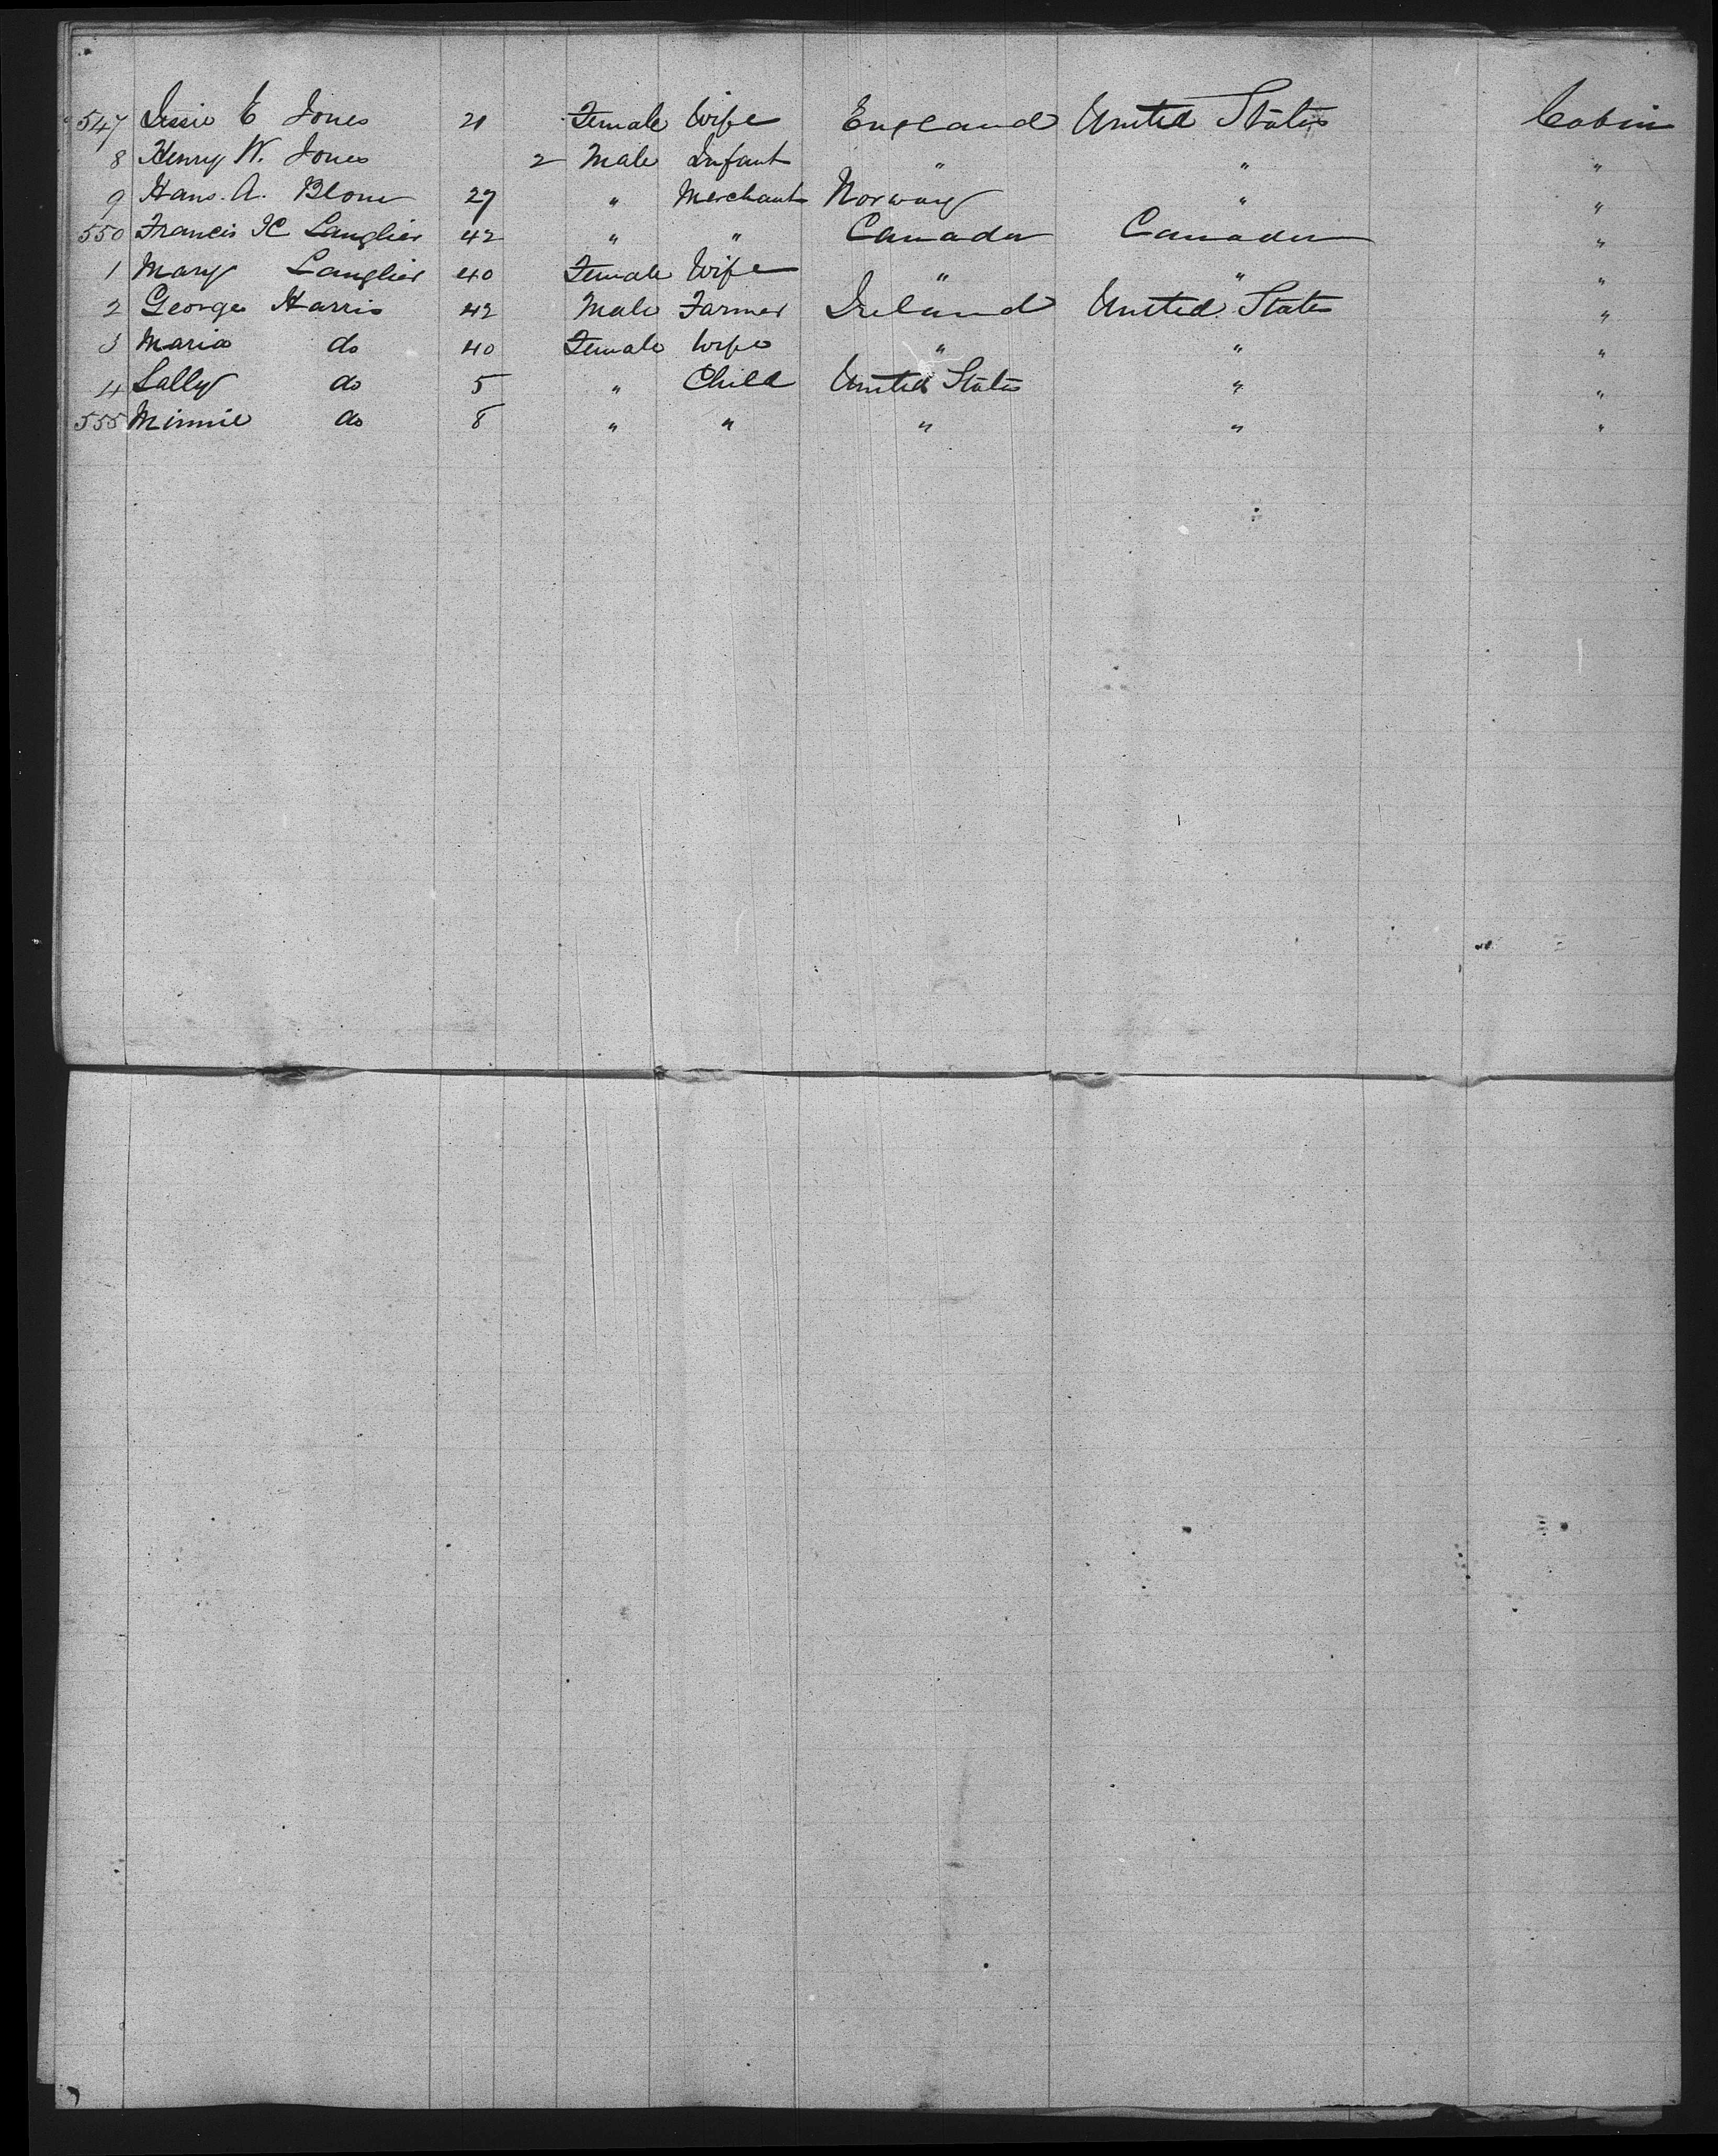 547 Jessie E Jones 21 Female Wife England United States Cabin
8 Henry W. Jones 2 Male Infant " " "
9 Hans. A. Blom 27 " Merchant Norway " "
550 Francis K Langlier 42 " " Canada Canada "
1 Mary Langlier 40 Female Wife " " "
2 George Harris 42 Male Farmer Ireland United States "
3 Maria do 40 Female Wife " " "
4 Sally do 5 " Child United States " "
555 Minnie do 8 " " " " "